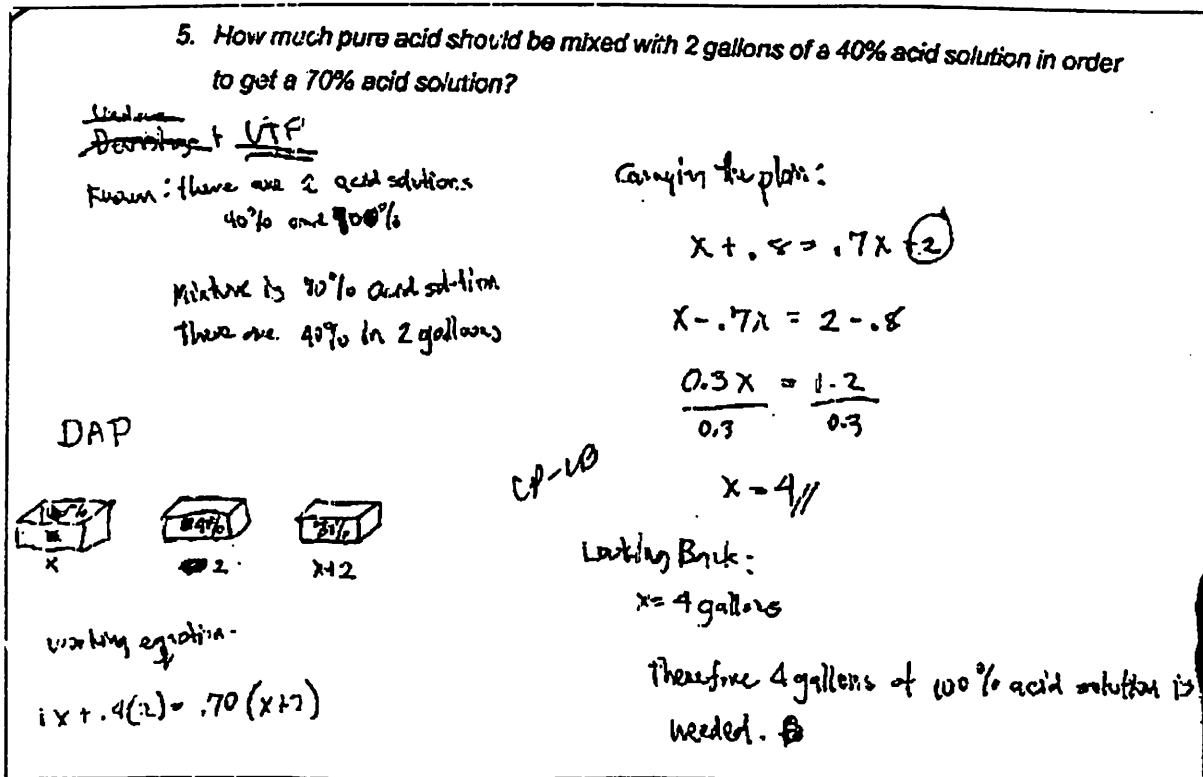 5. How much pure acid should be mixed with 2 gallons of a 40% acid solution in order
to get a 70% acid solution?
+ UTP
Known: there are 2 acid solutions
40% and 100%
Mixture is 70% acid solution
There are 40% in 2 gallons
DAP
100% 40% 70%
x 2 x+2
working equation
1x + .4(2) = .70(x+2)
Carryin the plan:
x + .8 = .7x + 2
x - .7x = 2 - .8
0.3x = 1.2
0.3 0.3
CP-LB
x = 4//
Looking Back:
x = 4 gallons
Therefore 4 gallons of 100% acid solution is
needed.